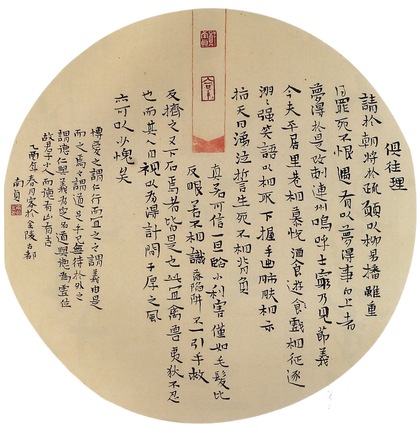 俱往理
請於朝將於疏願以柳易播雖重
得罪死不恨遇有以夢得事白上者
夢得於是改刺連州嗚呼士窮乃見節義
今夫平居里巷相慕悅酒食遊食戲相征逐
詡詡強笑語以相取下握手出肺肝相示
指天日涕泣誓生死不相背負
真若可信一旦臨小利害僅如毛髮比
反眼若不相識落陷阱不一引手救
反擠之又下石焉者皆是也此宜禽獸夷狄不忍
也而其人自視以為得計聞子厚之風
亦可以少愧矣
博愛之謂仁行而宜之之謂義由是
而之焉之謂道足乎己無待於外之
謂德仁與義為定名道與德為虛位
故君子小人而德有凶有吉
乙酉年春月客於金陵古都
南貞